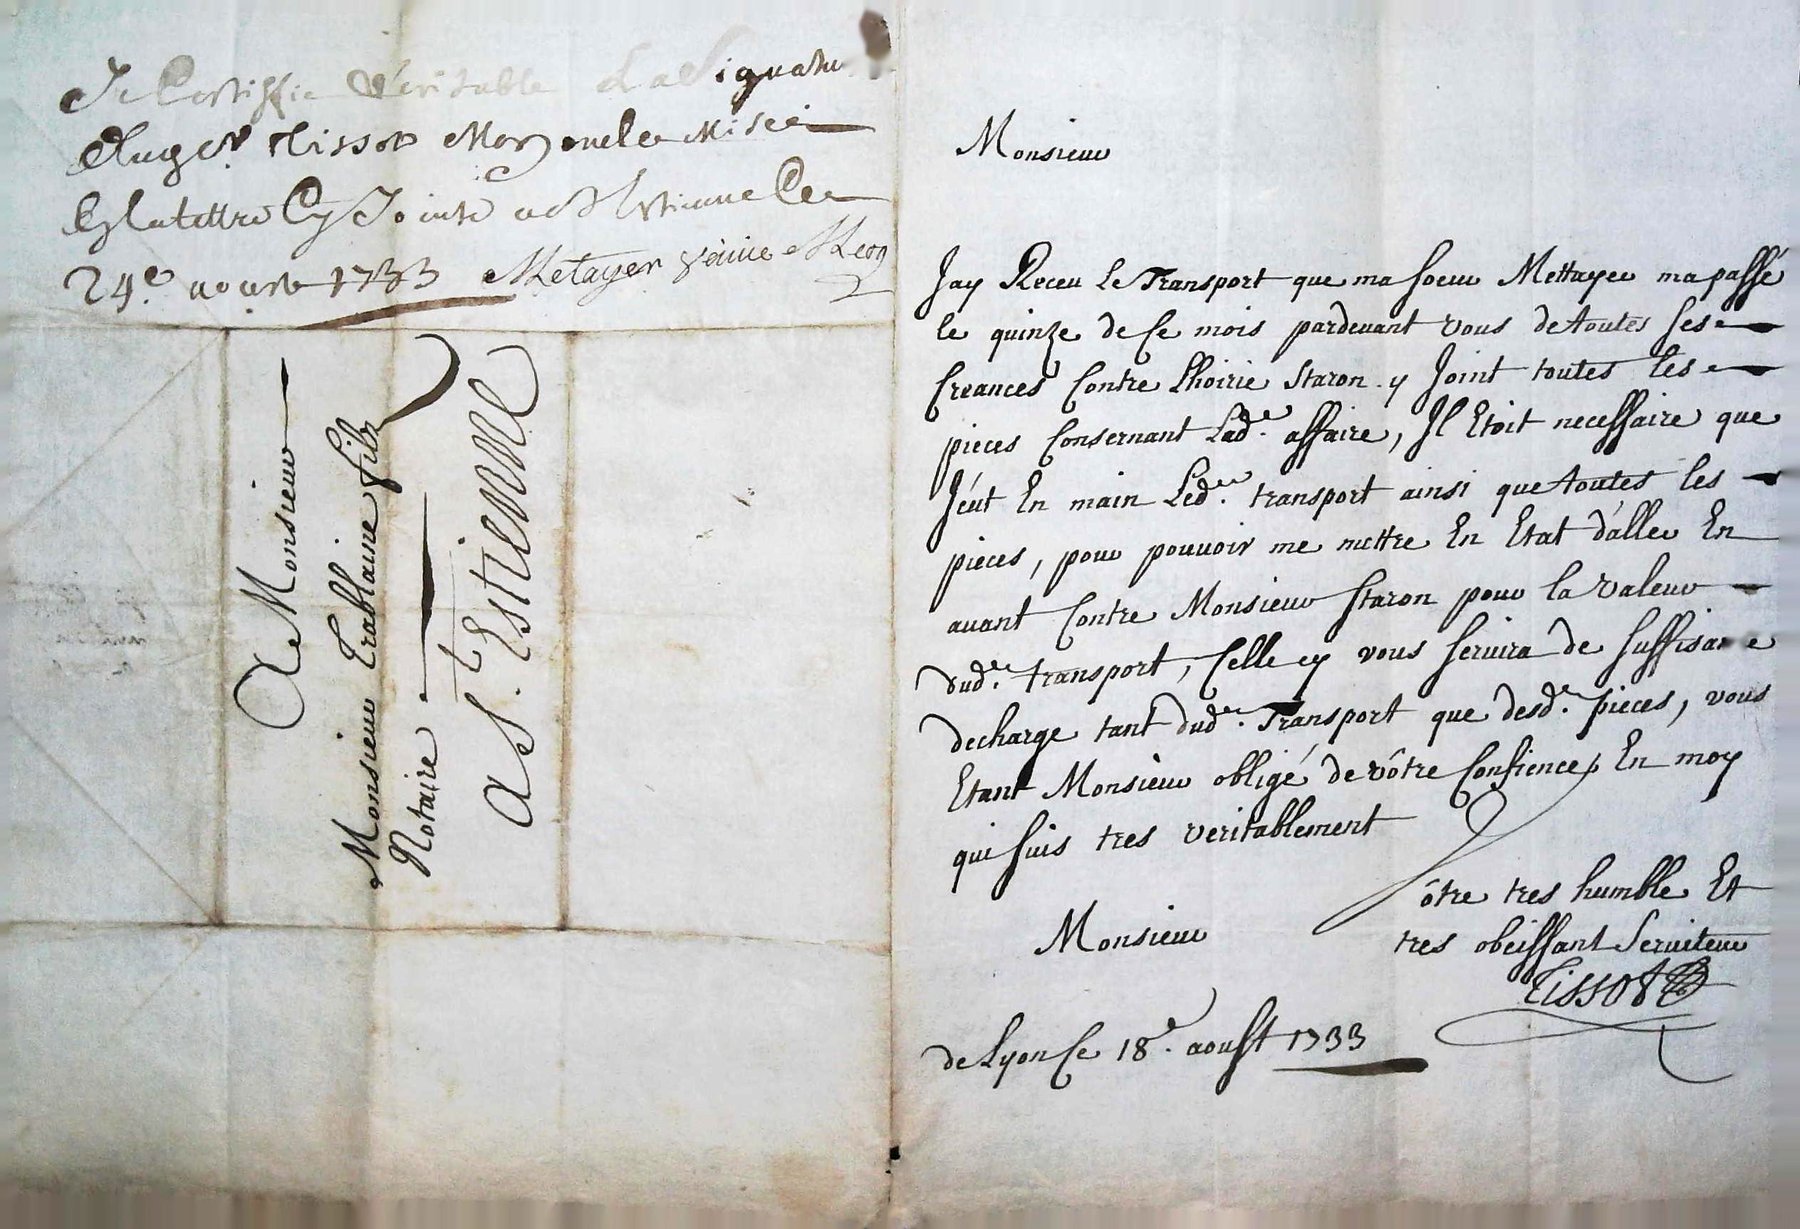 Je Certiffie Veritable la Signatu
du Sr Tissot Mon oncle Mise
a la lettre Cy Jointe a St Estienne Ce
24e aoust 1733 Metayer veuve
A Monsieur
Monsieur Trablaine fils
Notaire
a St. Estienne
Monsieur
Jay Receu Le Transport que ma soeur Mettayer ma passé
le quinze de Ce mois pardevant vous de toutes Ses
Creances Contre Lhoirie Staron y Joint toutes les
pieces Consernant Lade. affaire, Il Etoit necessaire que
Jéut En main Led. transport ainsi que toutes les
pieces, pour pouvoir me mettre En Etat d'aller En
avant Contre Monsieur Staron pour la Valeur
dud. transport, Celle cy vous servira de suffisan e
decharge tant dud. Transport que desd. pieces, vous
Etant Monsieur obligé de vôtre Confience En moy
qui suis tres veritablement
Monsieur
Vôtre tres humble Et
tres obeissant Serviteur
Tissot
de Lyon Ce 18e. aoust 1733